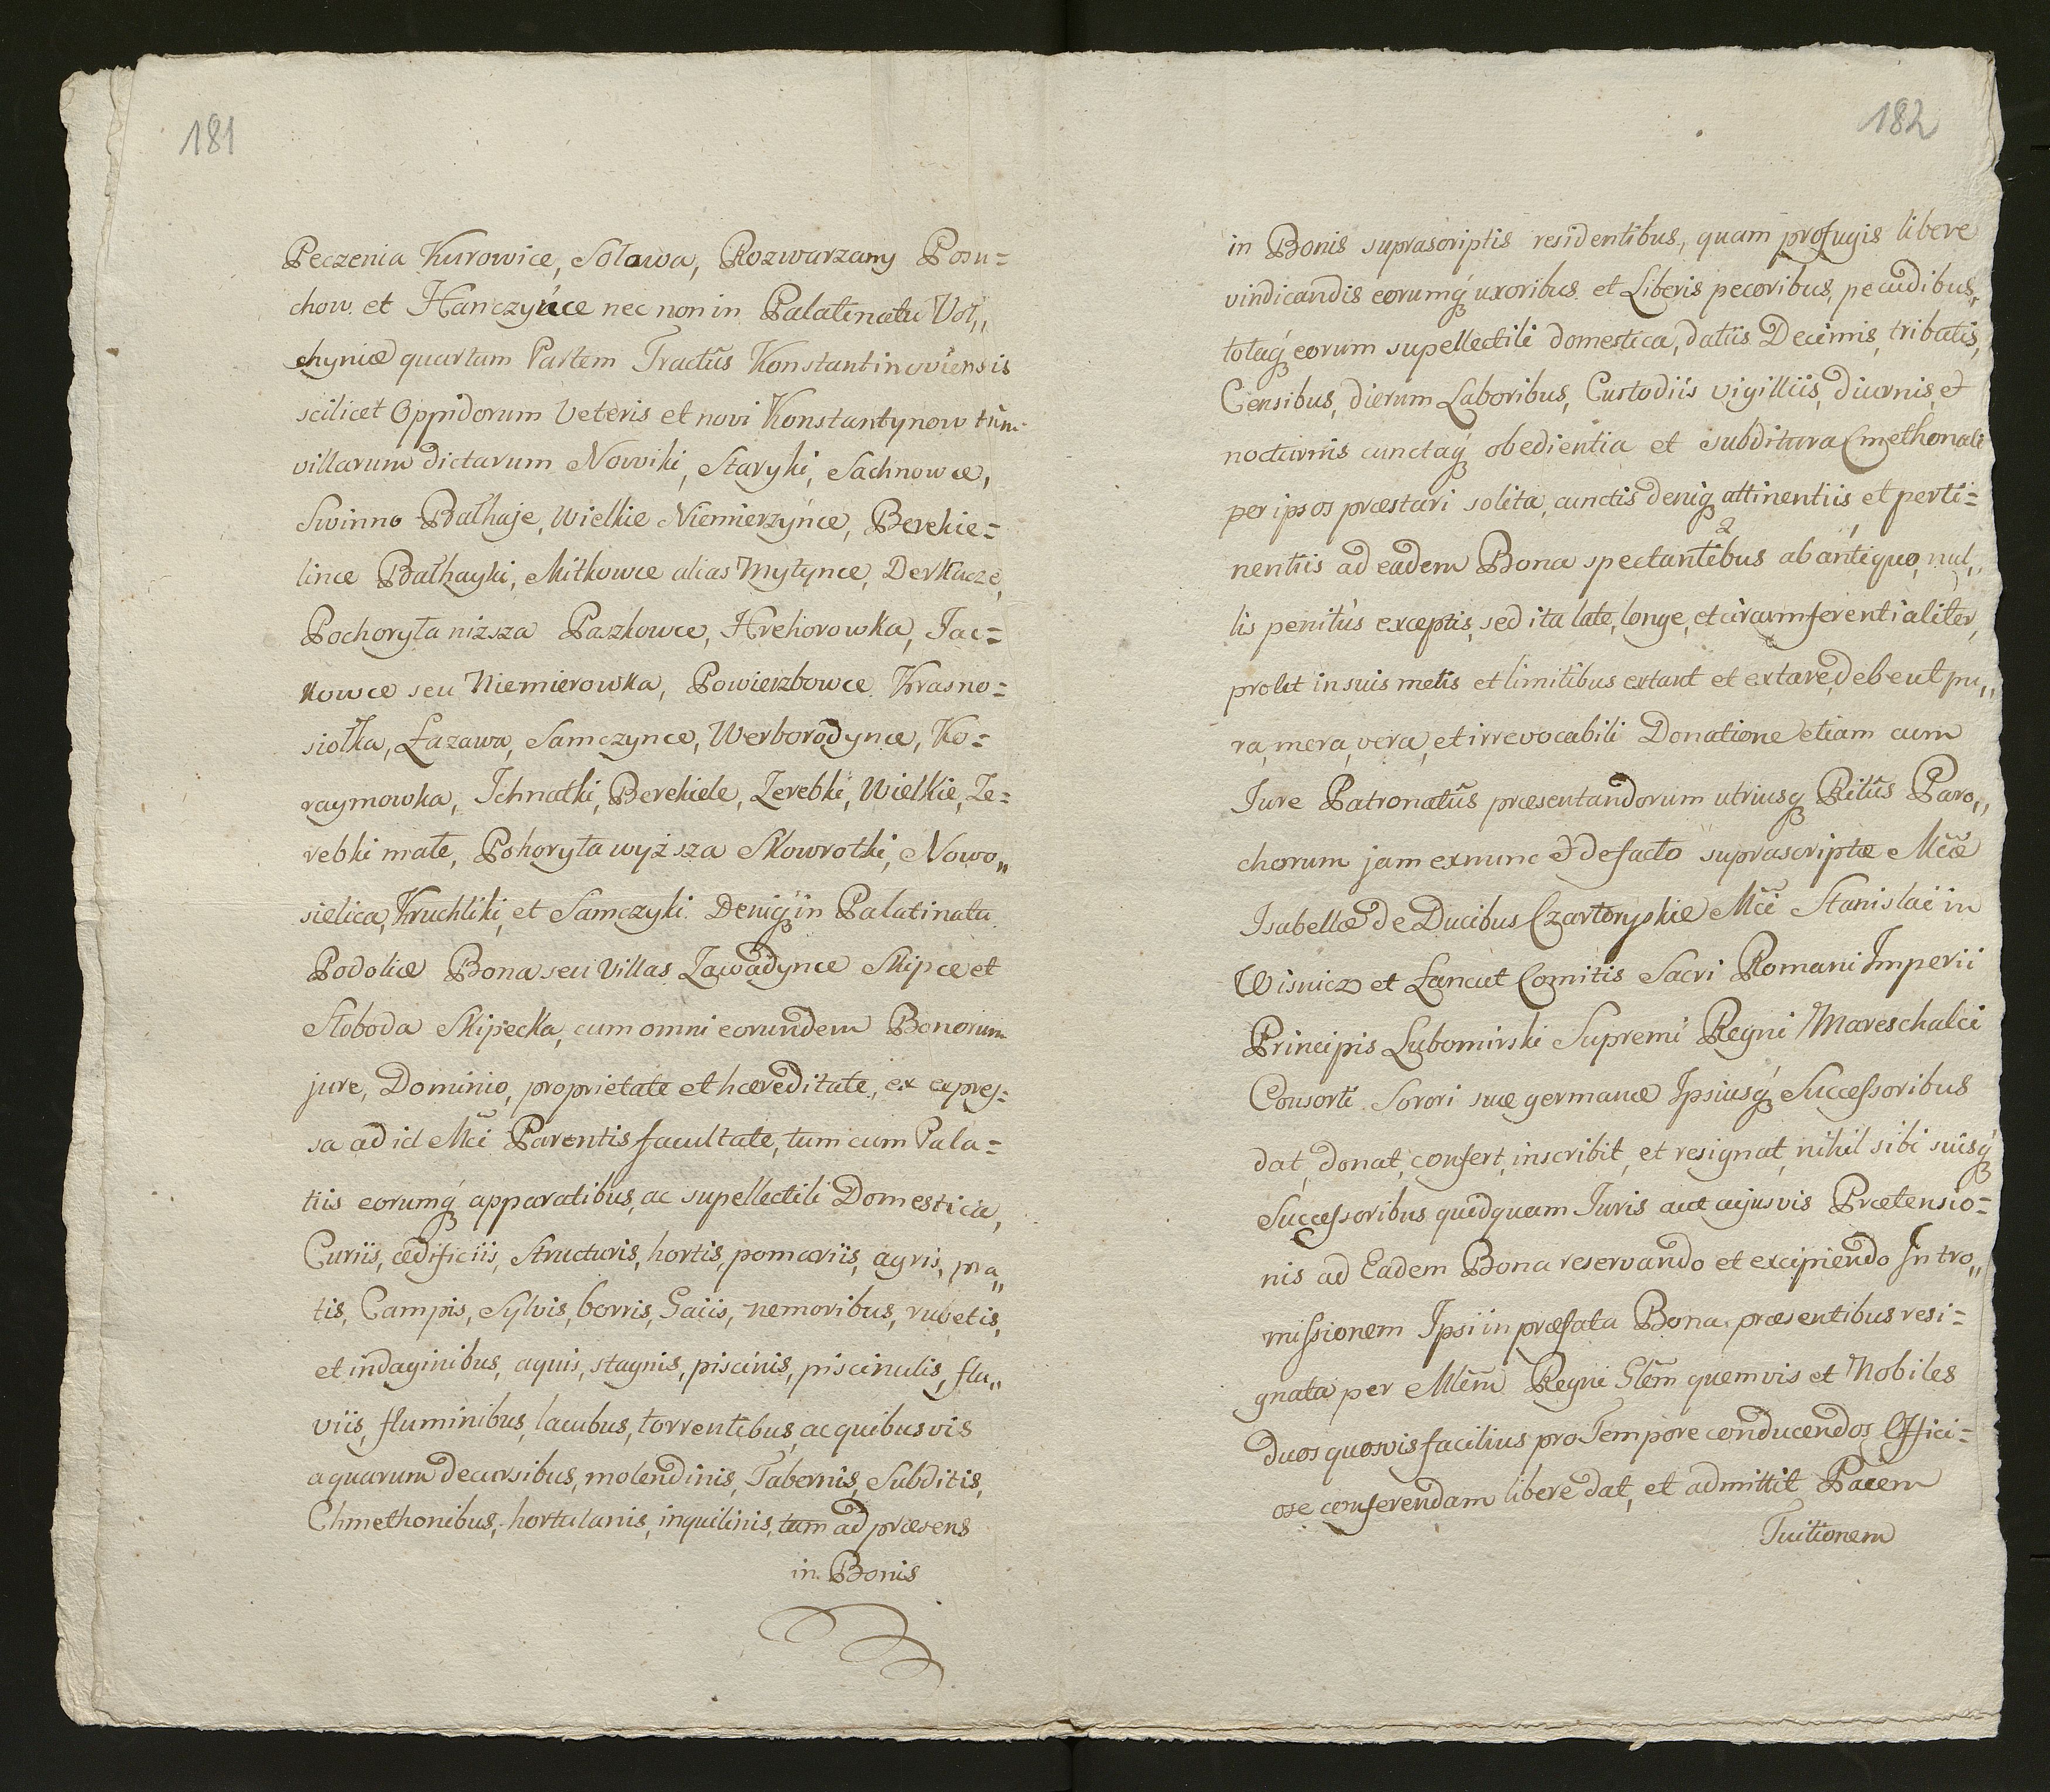 181
Peczenia Kurowice, Solowa, Rozwarzany Posu=
chow. et Hanczynce nec non in Palatinatu Vol„
chyniæ quartam Partem Tractûs Konstantinoviensis
scilicet Oppidorum Veteris et novi Konstantynow tùm
villarum dictarum Nowiki, Staryki, Sachnowce,
Swinno Bałhaje, Wielkie Niemierzynce, Berekie=
lince Bałhayki, Mitkowce alias Mytynce, Derkacze,
Pochoryła nizsza Pazkowce, Hrehorowka, Jac=
kowce seu Niemierowka, Powierzbowce Krasno=
siołka, Łazawa, Samczynce, Werborodynce, Ko=
raymowka, Ichnatki, Berekiele, Zerebki, Wielkie, Ze=
rebki małe, Pohoryła wyższa Skowrotki, Nowo„
sielica, Kruchliki, et Samczyki. Deniq́ in Palatinatu
Podoliæ Bona seu Villas Zawadynce Skipce et
Słoboda Skipecka, cum omni eorundem Bonorum
jure, Dominio, proprietate et hæreditate, ex expres=
sa ad id Mcĩ Parentis facultate, tum cum Pala=
tiis eorumq́ apparatibus, ac supellectili Domestica,
Curiis, ædificiis, Structuris, hortis, pomariis, agris, pra„
tis, Campis, Sylvis, borris, Gaiis, nemoribus, rubetis,
et indaginibus, aquis, stagnis, piscinis, piscinulis, flu„
viis, fluminibus, lacubus, torrentibus, ac quibusvis
aquarum decursibus, molendinis, Tabernis, Subditis,
Chmethonibus, hortulanis, inquilinis, tam ad præsens
in Bonis
182
in Bonis suprascriptis residentibus, quam profugis libere
vindicandis eorumq́ uxoribus et Liberis pecoribus, pecudibus,
totaq́ eorum supellectili domestica, datiis Decimis, tributis,
Censibus, dierum Laboribus, Custodiis vigilliis, diurnis, et
nocturnis cunctaq́ obedientia et subditura Cmethonali
per ipsos præstari solita, cunctis deniq́ attinentiis, et perti=
nentiis ad eadem Bona spectantibus ab antiquo, nul„
lis penitùs exceptis, sed ita late, longe, et circumferentialiter,
prout in suis metis et limitibus extant et extare, debent pu„
ra, mera, vera, et irrevocabili Donatione etiam cum
Jure Patronatûs præsentandorum utriusq́ Ritûs Paro„
chorum jam exnunc et defacto suprascriptæ Mcæ̃
Isabellæ de Ducibus Czartoryskie Mcĩ Stanislai in
Wisnicz et Łancut Comitis Sacri Romani Imperii
Principis Lubomirski Supremi Regni Mareschalci
Consorti Sorori suæ germanæ Ipsiusq́ Successoribus
dat, donat, confert, inscribit, et resignat, nihil sibi suisq́
Successoribus quidquam Juris aut cujusvis Prætensio=
nis ad Eadem Bona reservando et excipiendo Intro„
missionem Ipsi in præfata Bona præsentibus resi=
gnata per Mlẽm Regni Glẽm quemvis et Nobiles
duos quosvis facilius pro Tempore conducendos Offici=
ose conferendam libere dat, et admittit Pacem
Tuitionem